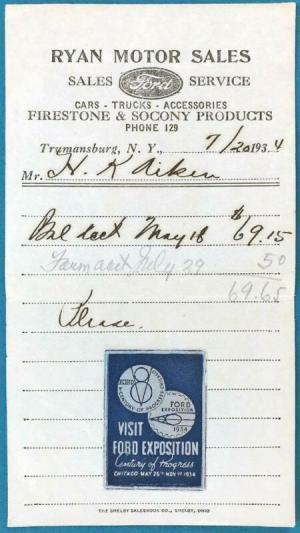 RYAN MOTOR SALES
SALES Ford SERVICE
CARS - TRUCKS - ACCESSORIES
FIRESTONE & SOCONY PRODUCTS
PHONE 129
Trumansburg, N. Y., 7/20 1934
Mr. H. K Aiken
Bal acct May 18 $69.15
Farm acct July 29 50
69.65
Please.
FORD
EXPOSITION
1934
VISIT
FORD EXPOSITION
Century of Progress
CHICAGO MAY 26TH NOV 1ST 1934
THE SHELBY SALESBOOK CO., SHELBY, OHIO